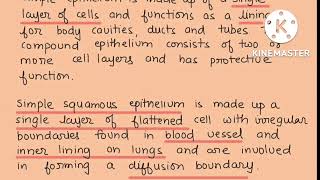 Simple epithelium is made up of a single
layer of cells and functions as a lining
for body cavities, ducts and tubes
compound epithelium consists of two or
more cell layers and has protective
function.
Simple squamous epithelium is made up a
single layer of flattened cell with irregular
boundaries found in blood vessel and
inner lining on lungs and are involved
in forming a diffusion boundary.
KINEMASTER